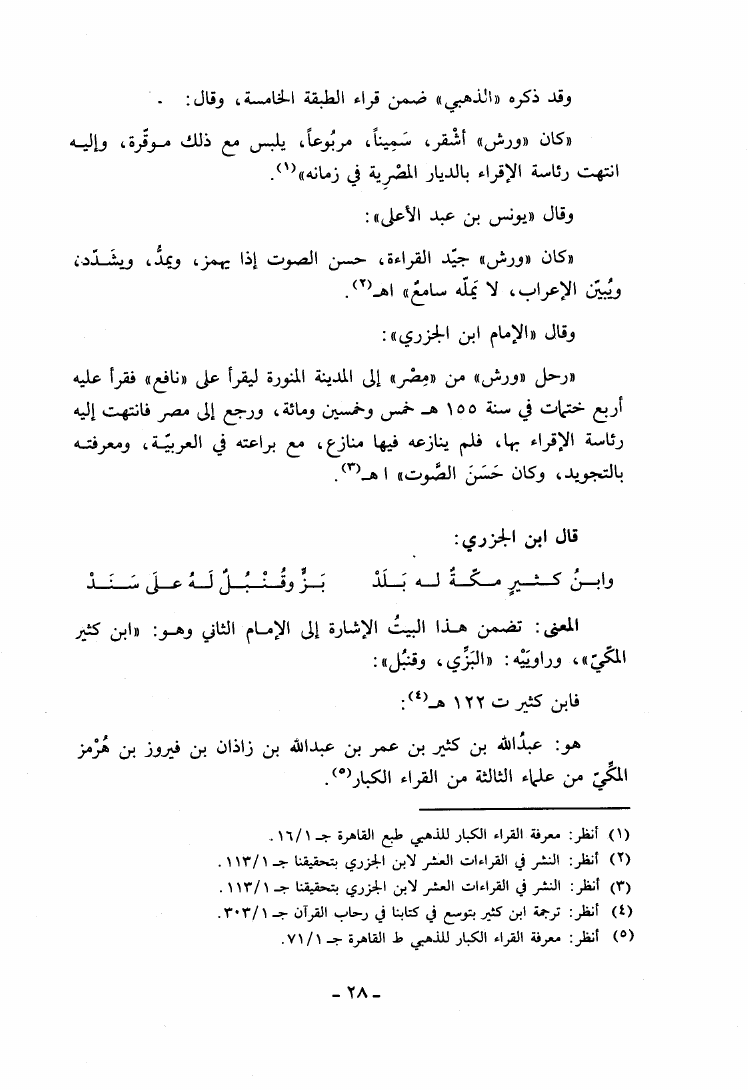 وقد ذكره «الذهبي» ضمن قراء الطبقة الخامسة، وقال:
«كان «ورش» أشْقر، سَمِيناً، مربُوعاً، يلبس مع ذلك موقّرة، وإليه
انتهت رئاسة الإقراء بالديار المصْرِية في زمانه»(١).
وقال «يونس بن عبد الأعلى»:
«كان «ورش» جيّد القراءة، حسن الصوت إذا يهمز، ويمدُّ، ويشَدّد،
ويُبيّن الإعراب، لا يَملّه سامعٌ» اهـ(٢).
وقال «الإمام ابن الجزري»:
«رحل «ورش» من «مِصْر» إلى المدينة المنورة ليقرأ على «نافع» فقرأ عليه
أربع ختمات في سنة ١٥٥ هـ خمس وخمسين ومائة، ورجع إلى مصر فانتهت إليه
رئاسة الإقراء بها، فلم ينازعه فيها منازع، مع براعته في العربيّة، ومعرفته
بالتجويد، وكان حَسَنَ الصَّوت» ا هـ(٣).
قال ابن الجزري:
وابنُ كثيرٍ مكّةُ له بَلَدْ بَزٍّ وقُنْبُلٌ لَهُ على سَنَدْ
المعنى: تضمن هذا البيتُ الإشارة إلى الإمام الثاني وهو: «ابن كثير
المكّيّ»، وراويَيْه: «البَزِّي، وقنبُل»:
فابن كثير ت ١٢٢ هـ(٤):
هو: عبدُالله بن كثير بن عمر بن عبدالله بن زاذان بن فيروز بن هُرْمز
المكِّيّ من علماء الثالثة من القراء الكبار(٥).
(١) أنظر: معرفة القراء الكبار للذهبي طبع القاهرة جـ ١٦/١.
(٢) أنظر: النشر في القراءات العشر لابن الجزري بتحقيقنا جـ ١١٣/١.
(٣) أنظر: النشر في القراءات العشر لابن الجزري بتحقيقنا جـ ١١٣/١.
(٤) أنظر: ترجمة ابن كثير بتوسع في كتابنا في رحاب القرآن جـ ٣٠٣/١.
(٥) أنظر: معرفة القراء الكبار للذهبي ط القاهرة جـ ٧١/١.
- ٢٨ -